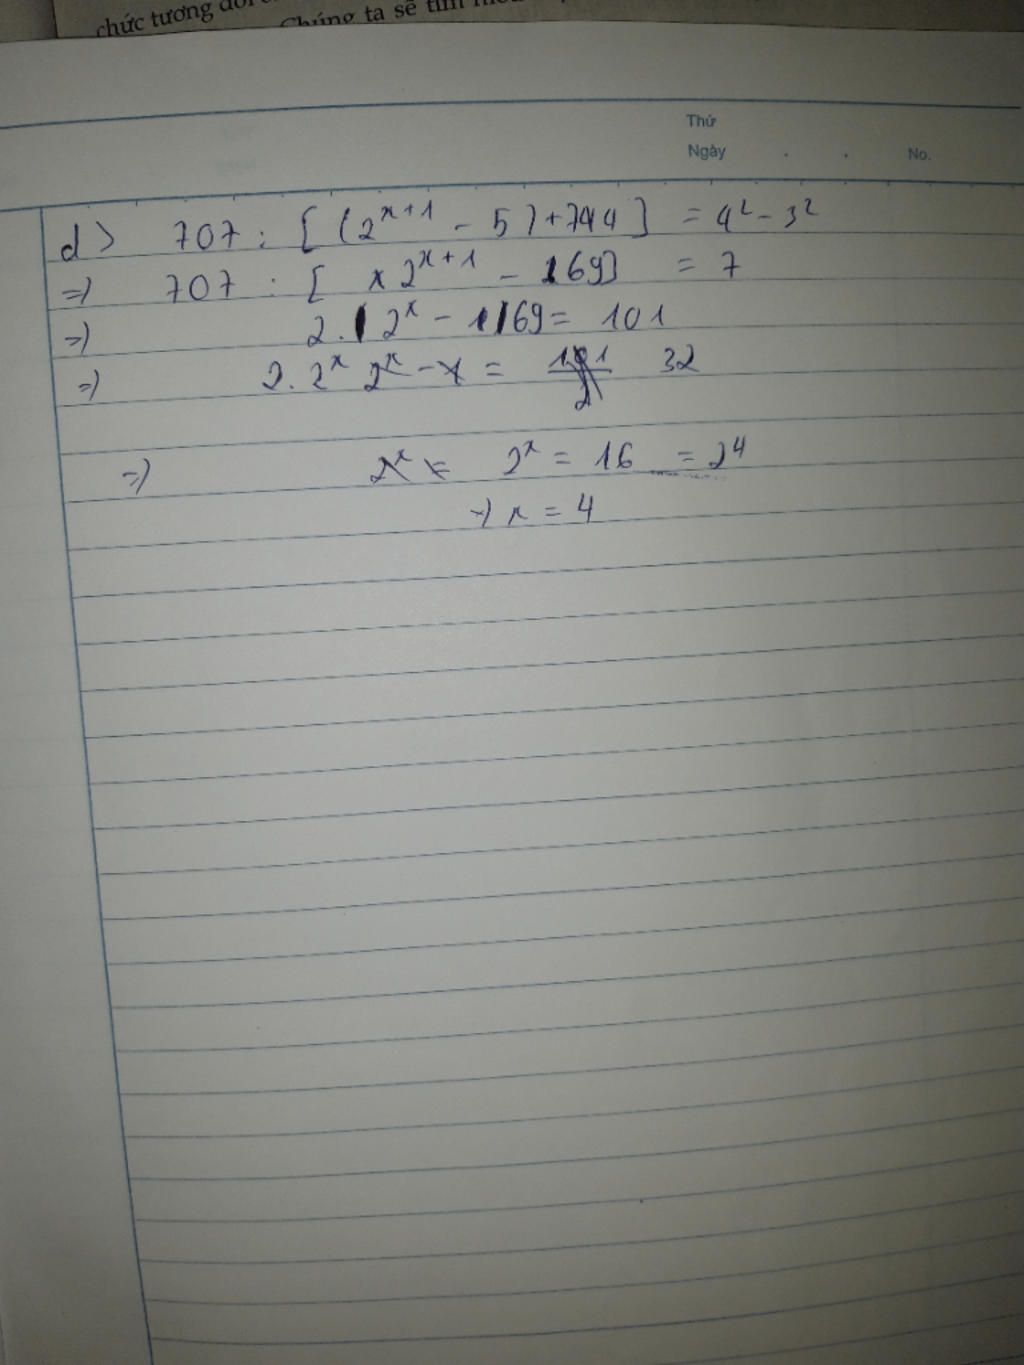 chức tương đối
Chúng ta sẽ tìm
Thứ
Ngày . . No.
d) 707 : [(2^{x+1} - 5) + 744] = 4² - 3²
=) 707 : [ 2^{x+1} - 169] = 7
=) 2. 2^x - 169 = 101
=) 2. 2^x = 32
=) 2^x = 16 = 2⁴
→) x = 4